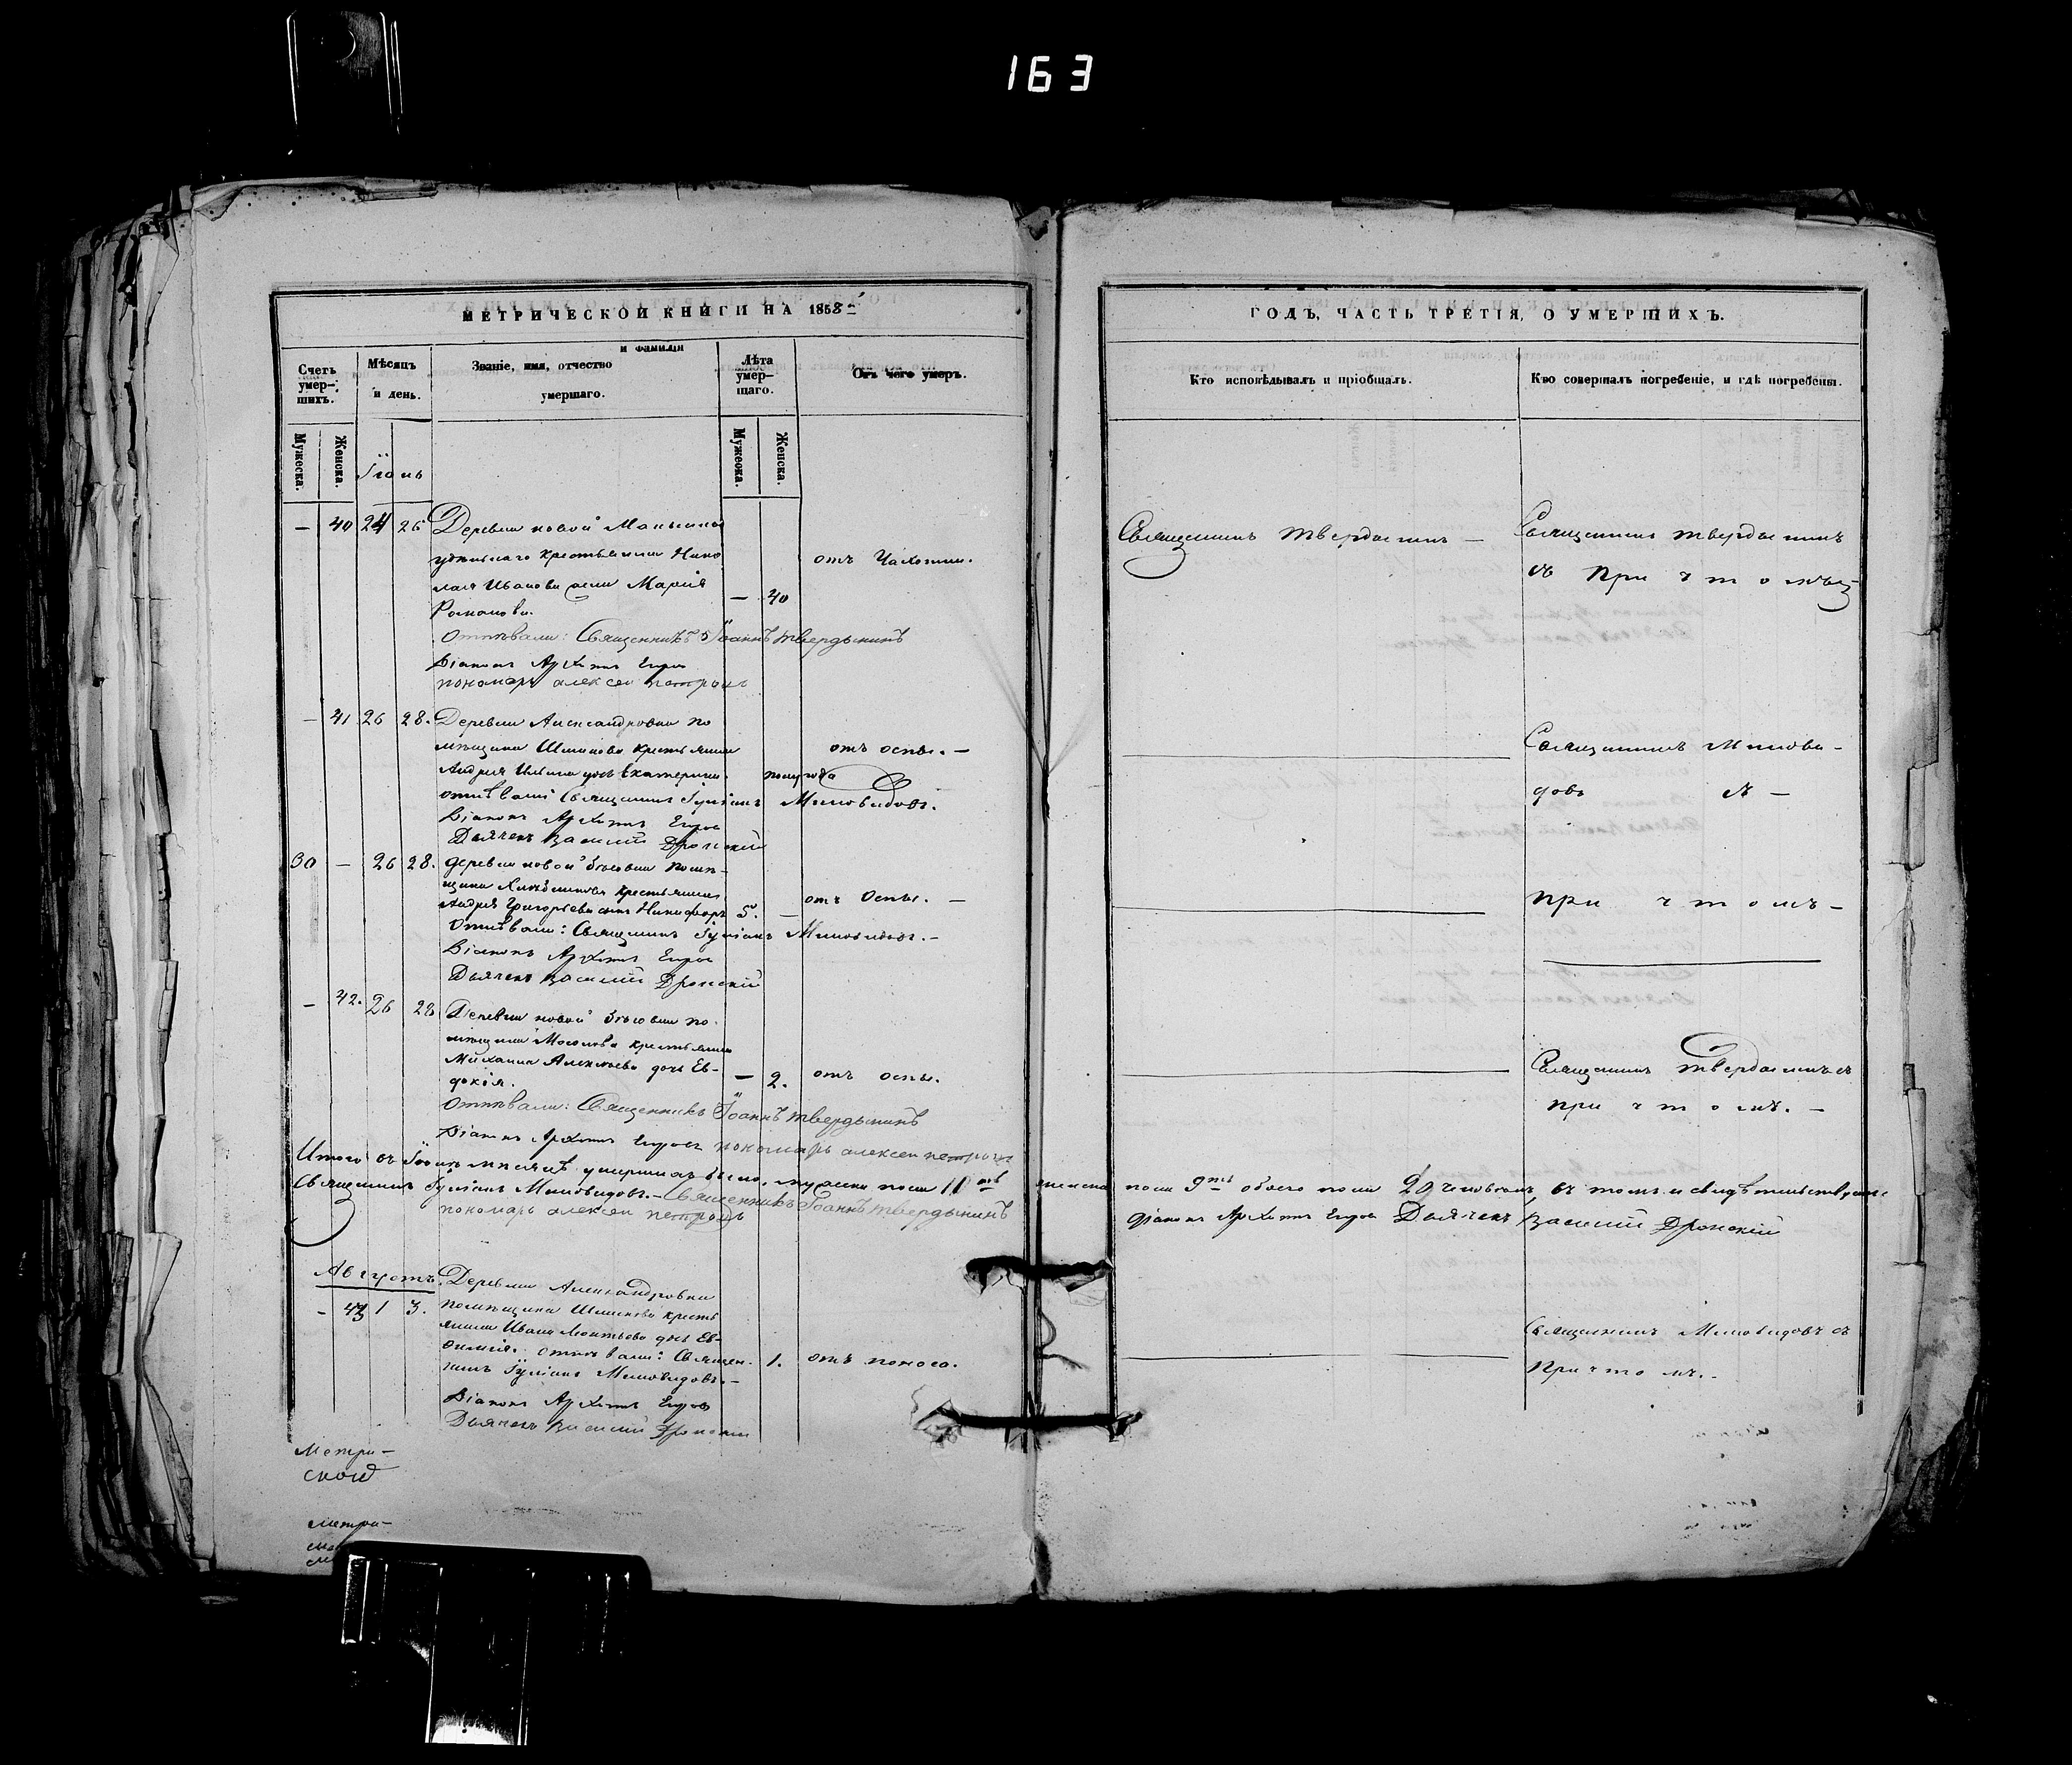 163
МЕТРИЧЕСКОЙ КНИГИ НА 1858
Счетъ умер- шихъ.
Мѣсяцъ и день.
Званіе, имя, отчество и фамилія умершаго.
Лѣта умер- шаго.
Отъ чего умеръ.
Мужеска.
Женска.
Мужеска.
Женска.
Іюнь
— 40 24 26 Деревни новой
крестьянина Нико
лая Иванова жена Марія
Романова.
— 40
отъ Чахотки.
Отпѣвали: Священникъ Іоаннъ Твердынинъ
Діаконъ Архипъ Егоровъ
пономарь алексеи петровъ
— 41 26 28. Деревни Александровки по
мѣщика Шишкова крестьянина
Андрея Ильина дочь Екатерина.
полугода
отъ оспы. —
отпѣвали Священникъ Іуліанъ Миловидовъ.
Діаконъ Архипъ Егоровъ
Дьячекъ Василій Дронскій
30 — 26 28. деревни новой помѣ-
щика крестьянина
Андрея Григорьева сынъ Никифоръ 5. —
отъ Оспы. —
Отпѣвали: Священникъ Іуліанъ Миловидовъ. —
Діаконъ Архипъ Егоровъ
Дьячекъ Василій Дронскій
— 42. 26 28 Деревни новой по-
мѣщика Мосолова крестьянина
Михаила Алексѣева дочь Ев-
докія.
— 2.
отъ оспы.
Отпѣвали: Священникъ Іоаннъ Твердынинъ
Діаконъ Архипъ Егоровъ пономарь алексеи петровъ
Итого въ Іюнѣ мѣсяцѣ умершихъ было, мужеска пола 11ть
Священникъ Іуліанъ Миловидовъ. — Священникъ Іоаннъ Твердынинъ
пономарь алексеи петровъ
Августъ. Деревни Александровки
— 43 1 3. помѣщика Шишкова кресть
янина Ивана Леонтьева дочь Ев-
фимія. отпѣвали: Священ-
никъ Іуліанъ Миловидовъ. —
1. отъ поноса.
Діаконъ Архипъ Егоровъ
Дьячекъ Василій Дронскій
Метри-
ской
метри-
ГОДЪ, ЧАСТЬ ТРЕТІЯ, О УМЕРШИХЪ.
Кто исповѣдывалъ и пріобщалъ.
Кто совершалъ погребеніе, и гдѣ погребены.
Священникъ Твердынинъ —
Священникъ Твердынинъ
съ причтомъ
Священникъ Милови-
довъ съ —
причтомъ —
Священникъ Твердынинъ съ
причтомъ. —
женска пола 9ть обоего пола 20 человѣкъ, въ томъ и свидѣтельствуемъ
діаконъ Архипъ Егоровъ Дьячекъ Василій Дронскій
Священникъ Миловидовъ съ
Причтомъ. —